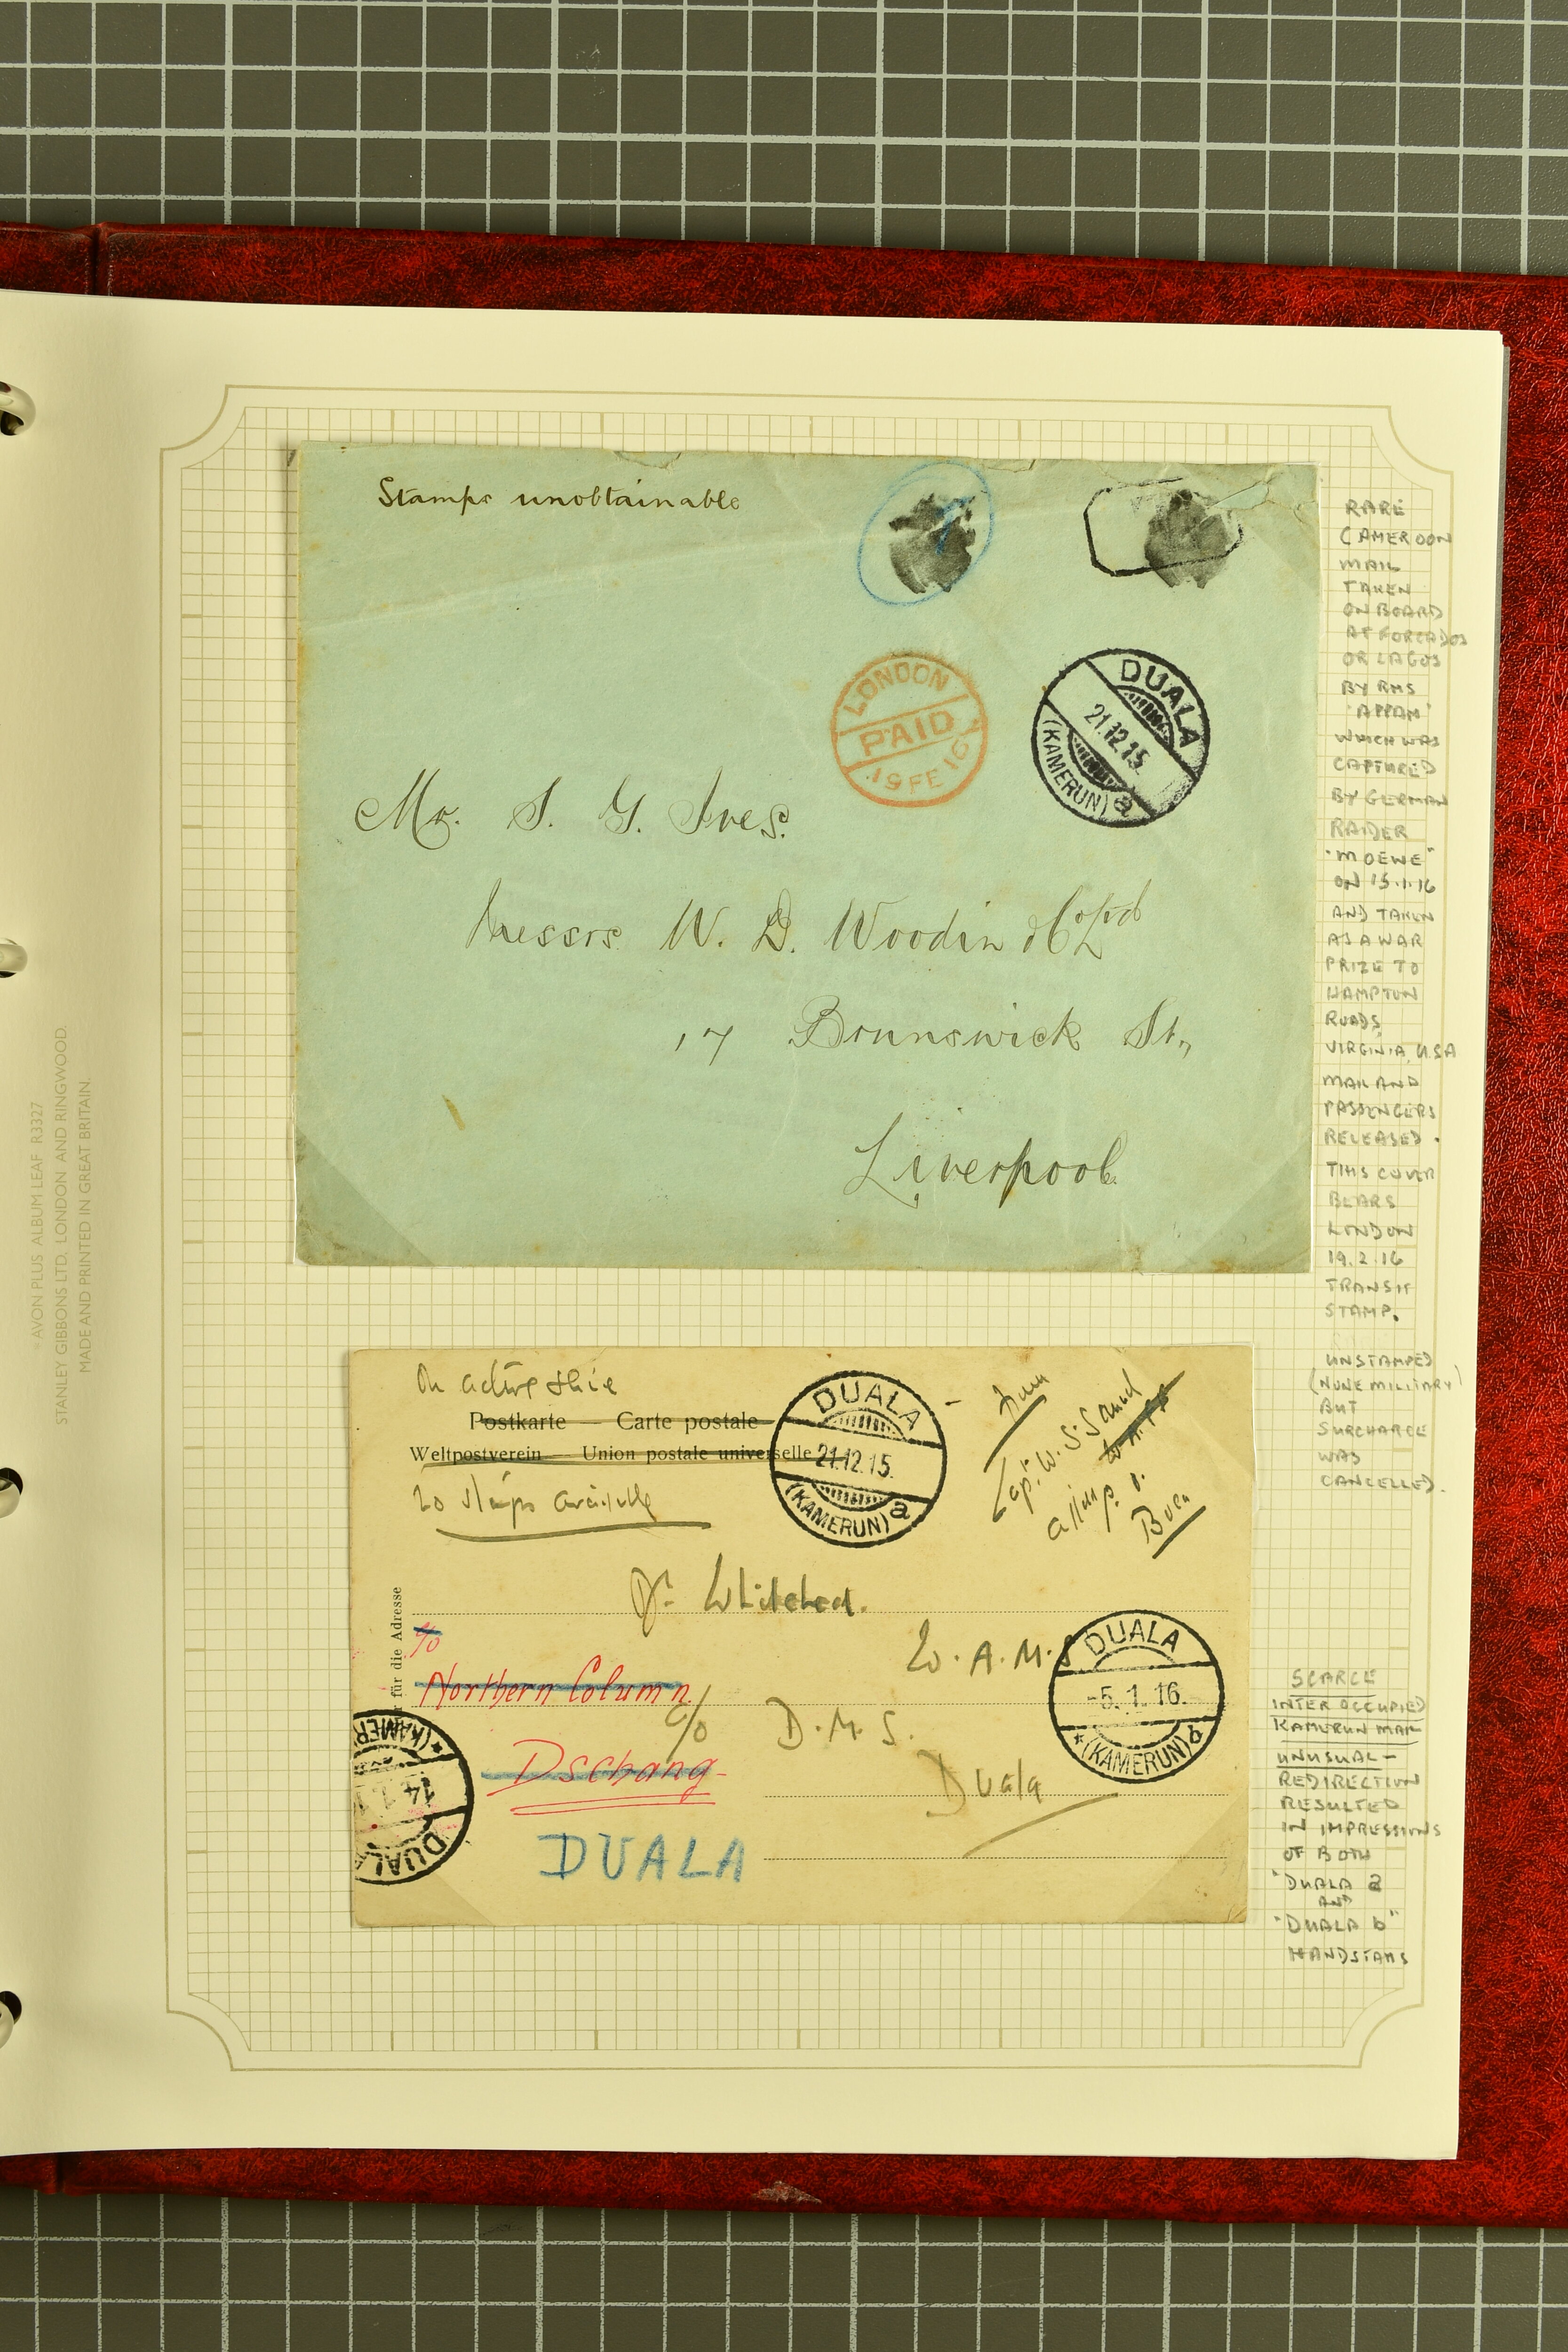 Stamps unobtainable
LONDON
PAID
19 FE 16
DUALA
21.12.15.
(KAMERUN) a
Mr. S. G. Ives.
Messrs. W. D. Woodin & Co Ltd
17 Brunswick St.,
Liverpool.
RARE
CAMEROON
MAIL
TAKEN
ON BOARD
AT FORCADOS
OR LAGOS
BY RMS
'APPAM'
WHICH WAS
CAPTURED
BY GERMAN
RAIDER
"MOEWE"
ON 15.1.16
AND TAKEN
AS A WAR
PRIZE TO
HAMPTON
ROADS,
VIRGINIA, USA
MAIL AND
PASSENGERS
RELEASED.
THIS COVER
BEARS
LONDON
19.2.16
TRANSIT
STAMP.
UNSTAMPED
(NONE MILITARY)
BUT
SURCHARGE
WAS
CANCELLED.
On active
Postkarte — Carte postale
Weltpostverein — Union postale universelle
stamps available
DUALA
21.12.15.
(KAMERUN) a
From
Capt. W. S.
Buea
Dr. Whitehead.
W. A. M. S
für die Adresse
c/o
Northern Column
c/o D. M. S.
Dschang
Duala
DUALA
DUALA
-5.1.16.
*(KAMERUN) b
(KAMER
14.1.1
DUALA
SCARCE
INTER OCCUPIED
KAMERUN MAIL
UNUSUAL —
REDIRECTION
RESULTED
IN IMPRESSIONS
OF BOTH
"DUALA a
AND
"DUALA b"
HANDSTAMS
AVON PLUS ALBUM LEAF R3327
STANLEY GIBBONS LTD. LONDON AND RINGWOOD.
MADE AND PRINTED IN GREAT BRITAIN.